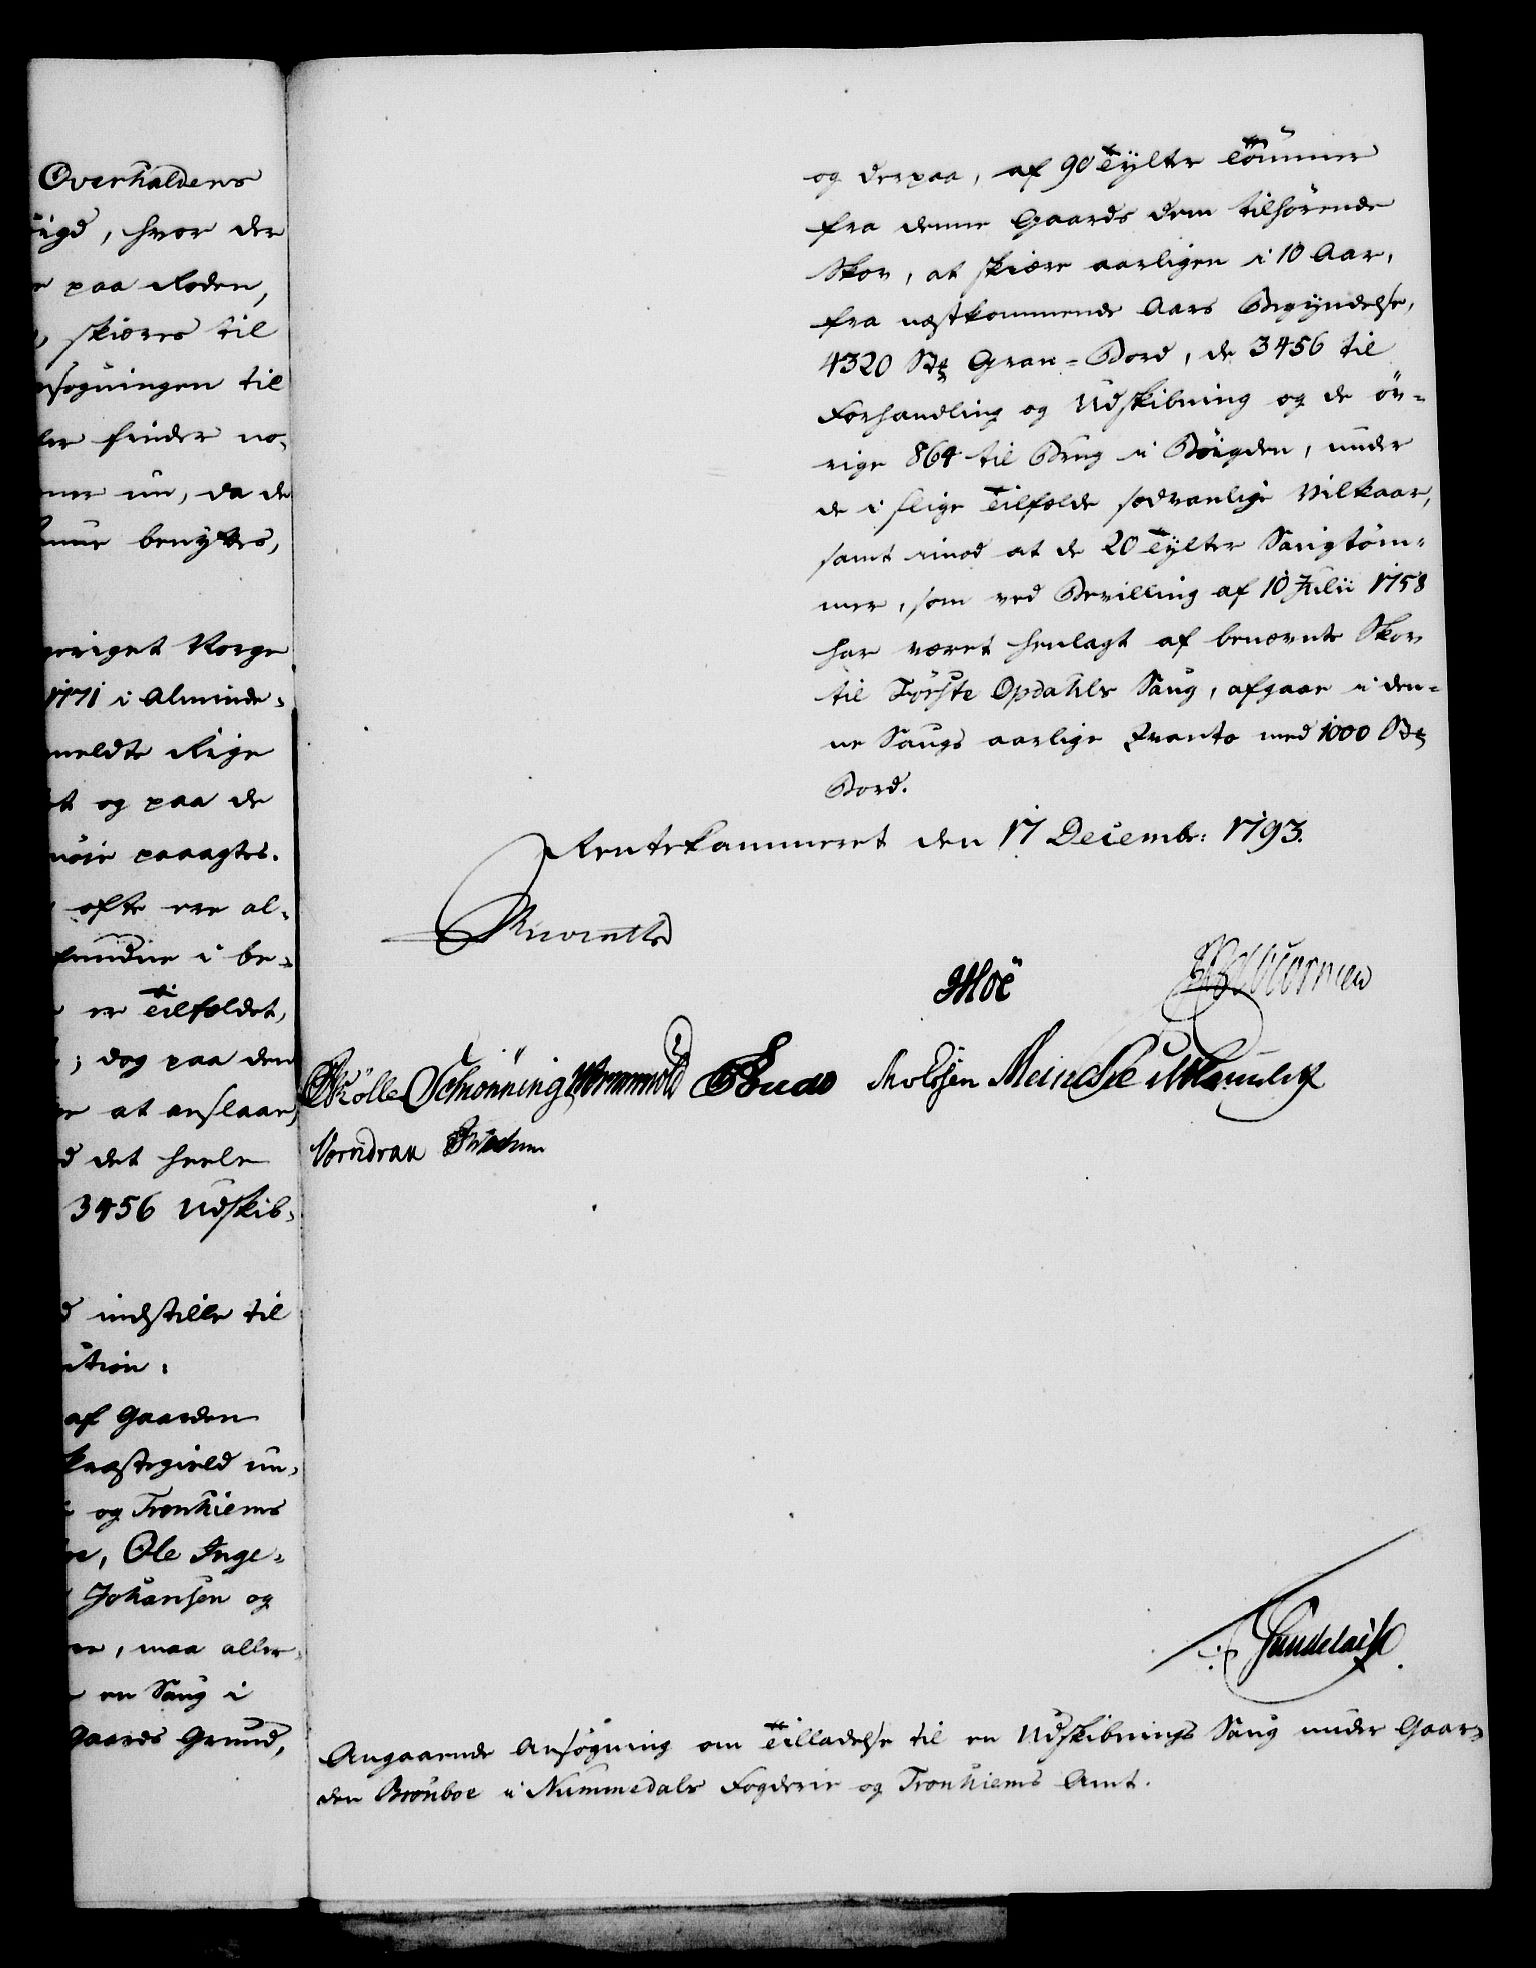 Overhaldens
igd, hvor der
paa Roden,
, skiæres til
nsøgningen til
ler finder no-
mer nu, da de
benyttes,
geriget Norge
1771 i Alminde-
meldte Rige
et og paa de
nøie paaagtes.
ofte ere al-
fundne i be-
er Tilfældet,
; dog paa den
at anslaae,
d det heele
3456 Udskib-
d indstille til
ution:
af Gaarden
Præstegield un-
og Tronhiems
, Ole Inge-
Johansen og
, maa aller-
en Saug i
Gaards Grund,
og derpaa, af 90 Tylter Tømmer
fra denne Gaards dem tilhørende
Skov, at skiære aarligen i 10 Aar,
fra næstkommende Aars Begyndelse,
4320 Stk Gran-Bord, de 3456 til
Forhandling og Udskibning og de øv-
rige 864 til Brug i Bøigden, under
de i slige Tilfælde sædvanlige Vilkaar,
samt imod at de 20 Tylter Saugtøm-
mer, som ved Bevilling af 10 Julii 1758
har været henlagt af benævnte Skov
til Tørste Opdahls Saug, afgaae i den-
ne Saugs aarlige Qvanto med 1000 Stk
Bord.
Rentekammeret den 17 Decembr: 1793.
Reventlow
Moë
Schønning Wormskiold Meincke
Vorndran
Gundelach
Angaaende Ansøgning om Tilladelse til en Udskibnings Saug under Gaar-
den Brønboe i Nummedals Fogderie og Tronhiems Amt.